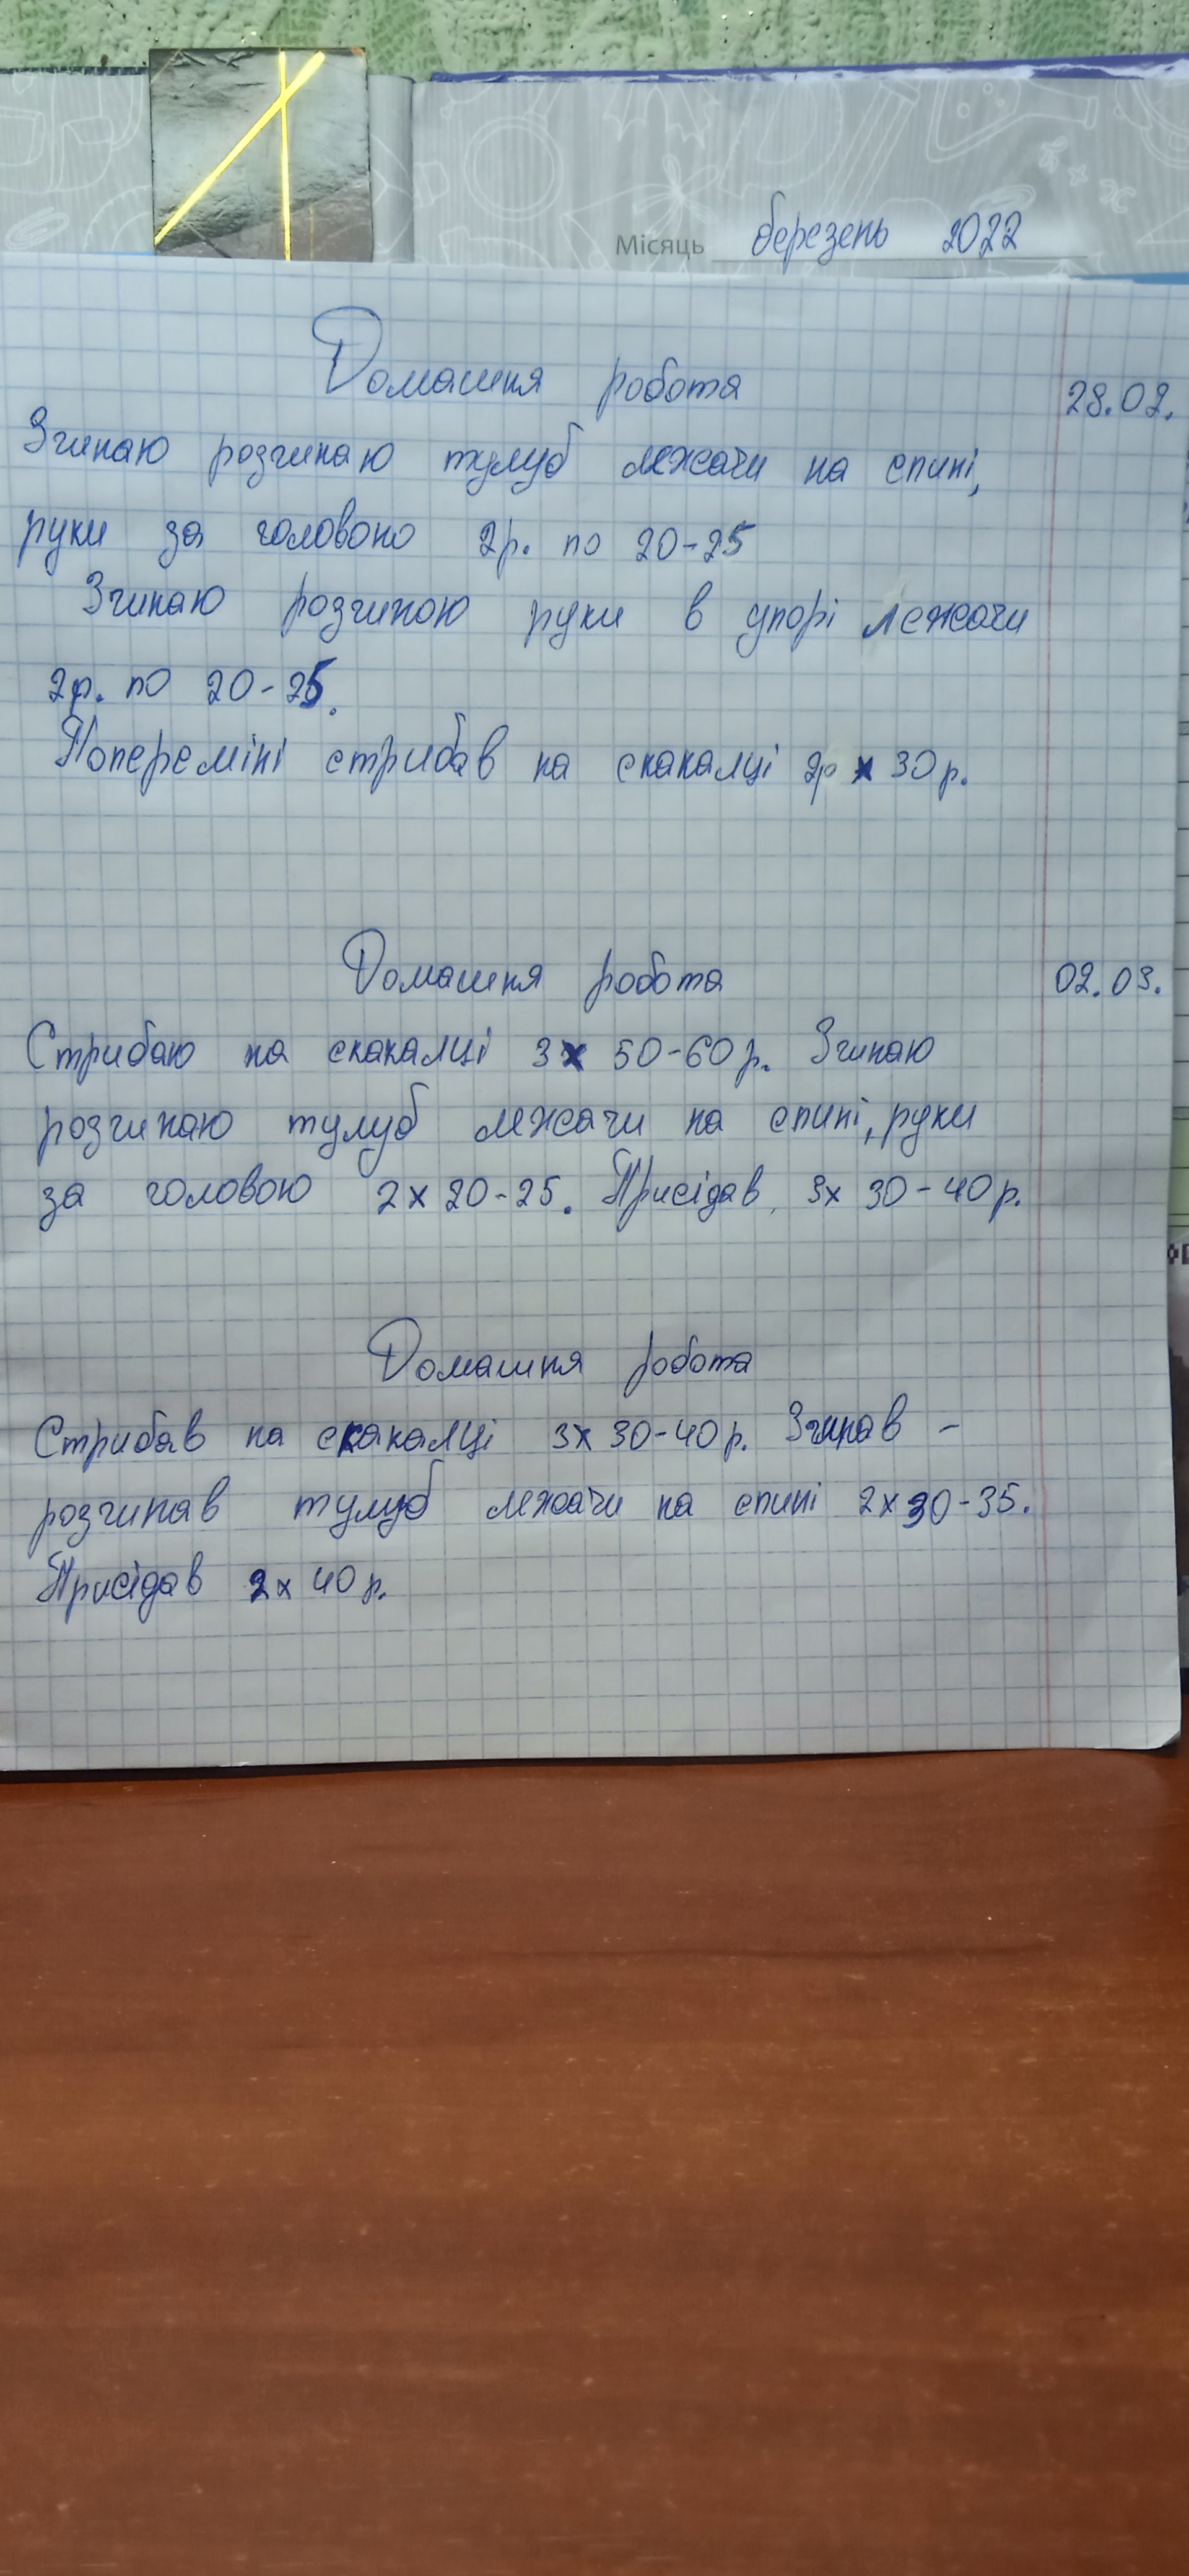 Місяць березень 2022
Домашня робота 28.02.
Згинаю розгинаю тулуб лежачи на спині,
руки за головою 2р. по 20-25
Згинаю розгиною руки в упорі лежачи
2р. по 20-25.
Попереміні стрибав на скакалці 2р x 30р.
Домашня робота 02.03.
Стрибаю на скакалці 3x 50-60р. Згинаю
розгинаю тулуб лежачи на спині, руки
за головою 2x20-25. Присідав 3x 30-40р.
Домашня робота
Стрибав на скакалці 3x 30-40р. Згинав -
розгинав тулуб лежачи на спині 2x30-35.
Присідав 2x 40р.